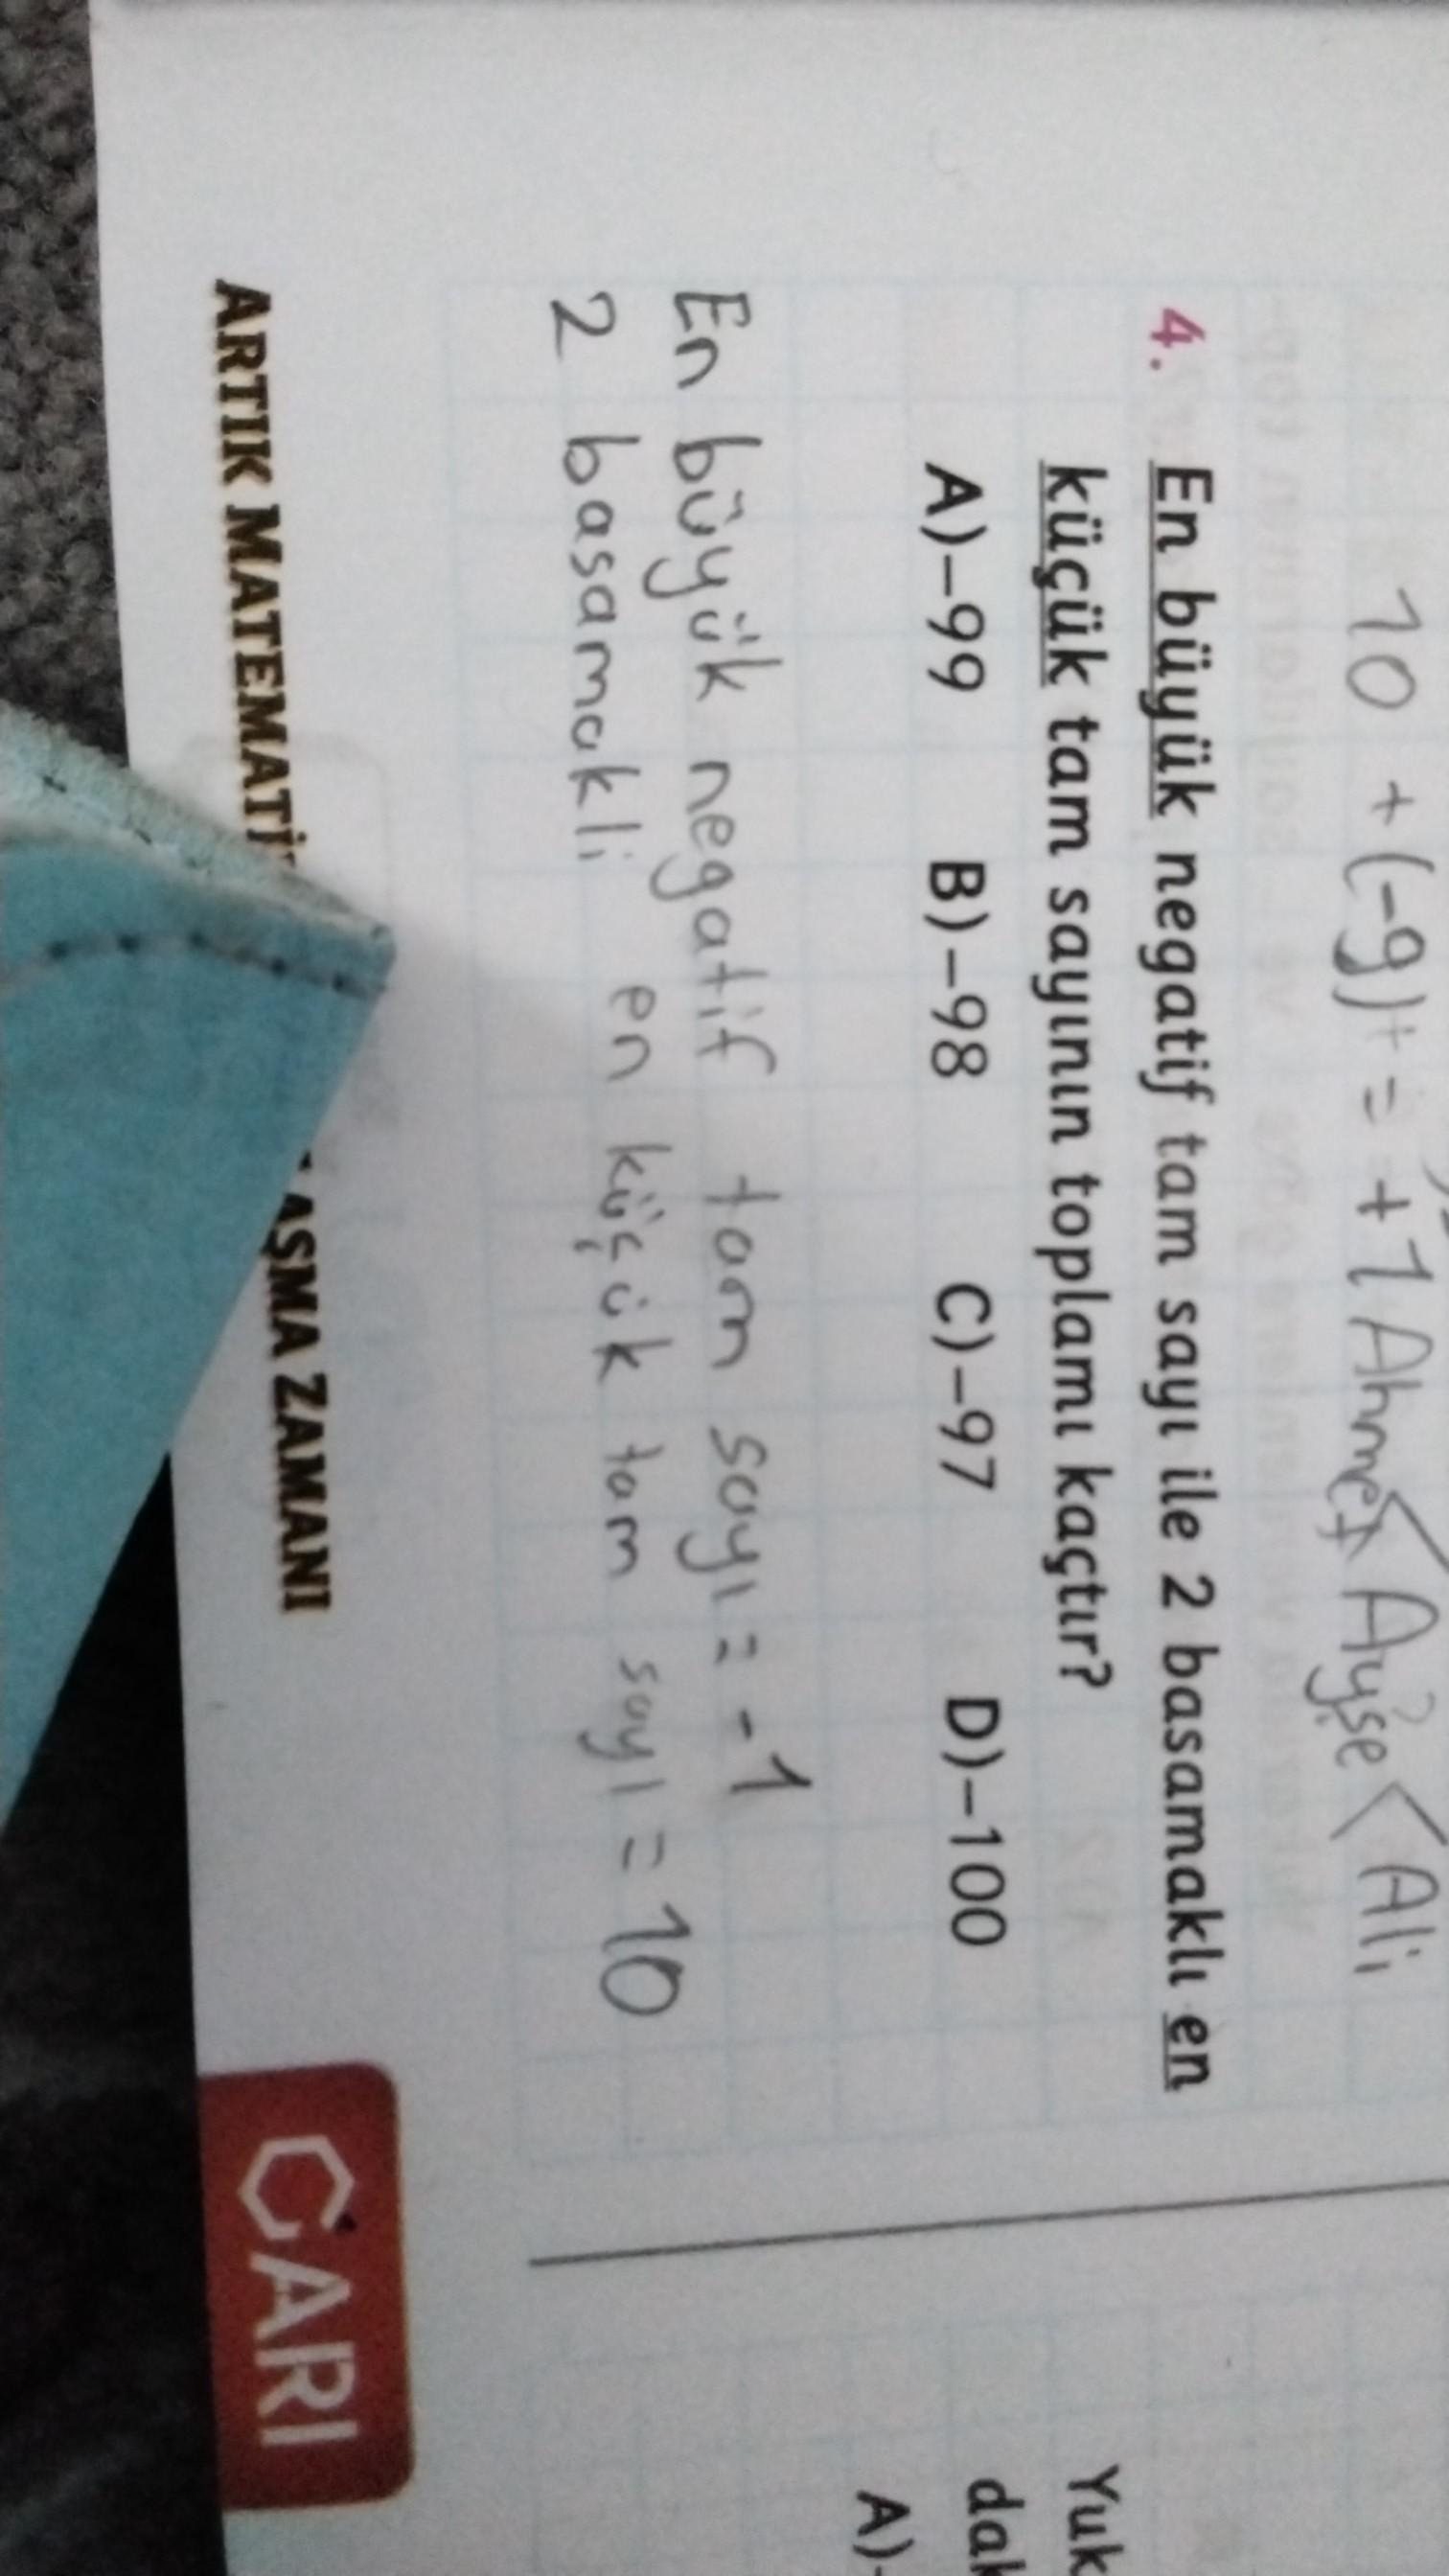 10 + (-9) = +1 Ahmet < Ayşe < Ali
4. En büyük negatif tam sayı ile 2 basamaklı en
küçük tam sayının toplamı kaçtır?
A)-99 B)-98 C)-97 D)-100
En büyük negatif tam sayı = -1
2 basamaklı en küçük tam sayı = 10
ARTIK MATEMATİ AŞMA ZAMANI
ÇARI
Yuk
dak
A)-